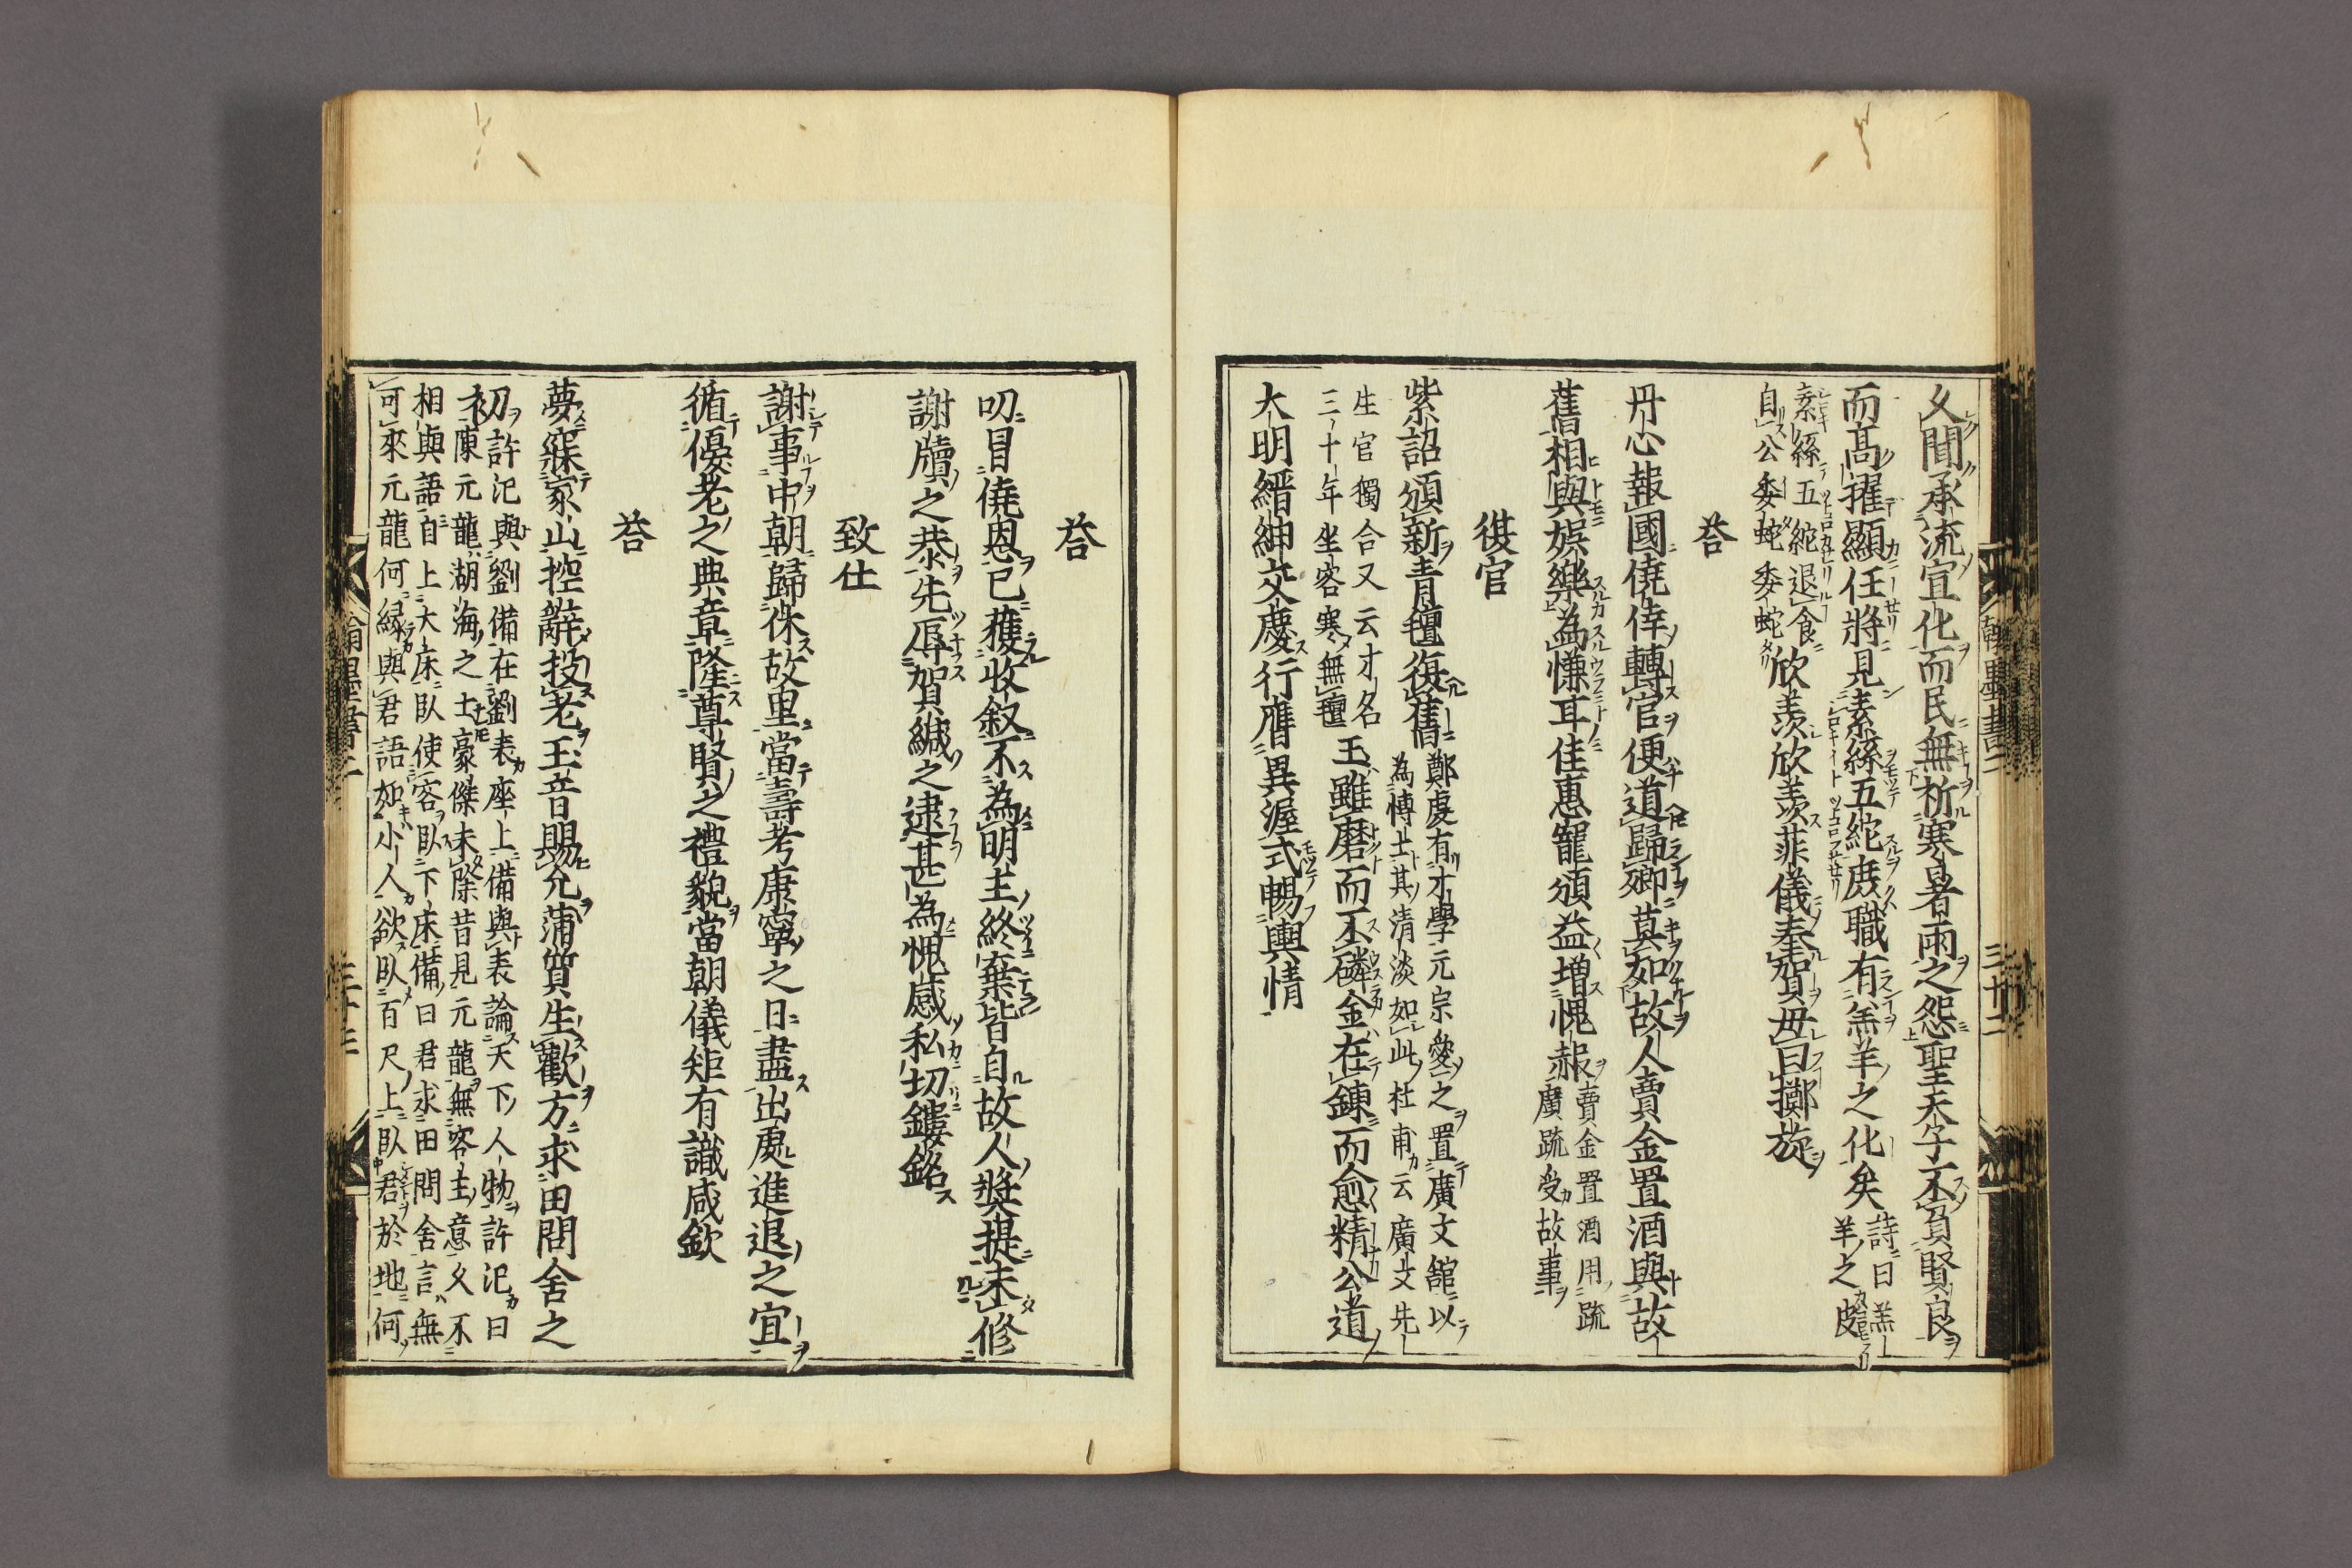 久聞承流宜化而民無祈寒暑雨之怨聖天子不負賢良
而高擢顯任將見素絲五紽庶職有羔羊之化矣詩曰羔
羊之皮
素絲五紽退食
自公委蛇委蛇欣羨欣羨菲儀奉賀毋曰擲旋
荅
丹心報國僥倖轉官便道歸鄉莫如故人賣金置酒與故
舊相與娛樂為慊耳佳惠寵頒益增愧赧賣金置酒用疏
廣疏受故事
復官
紫詔頒新青氊復舊鄭虔有才學元宗愛之置廣文館以
為博士其清淡如此杜甫云廣文先
生官獨合又云才名
三十年坐客寒無氊玉雖磨而不磷金在鍊而愈精公道
大明縉紳交慶行膺異渥式暢輿情
翰墨書二
三十二
荅
叨冒僥恩已獲收叙不為明主終棄皆自故人獎提未修
謝牘之恭先辱賀緘之逮甚為愧感私切鏤銘
致仕
謝事中朝歸休故里當壽考康寧之日盡出處進退之宜
循優老之典章隆尊賢之禮貌當朝儀矩有識咸欽
荅
夢寐家山控辭投老玉音賜允蒲質生歡方求田問舍之
初許汜與劉備在劉表座上備與表論天下人物許汜曰
陳元龍湖海之士豪傑未除昔見元龍無客主意久不
相與語自上大床臥使客臥下床備曰君求田問舍言無
可來元龍何緣與君語如小人欲臥百尺上臥君於地何
翰墨書二
三十三